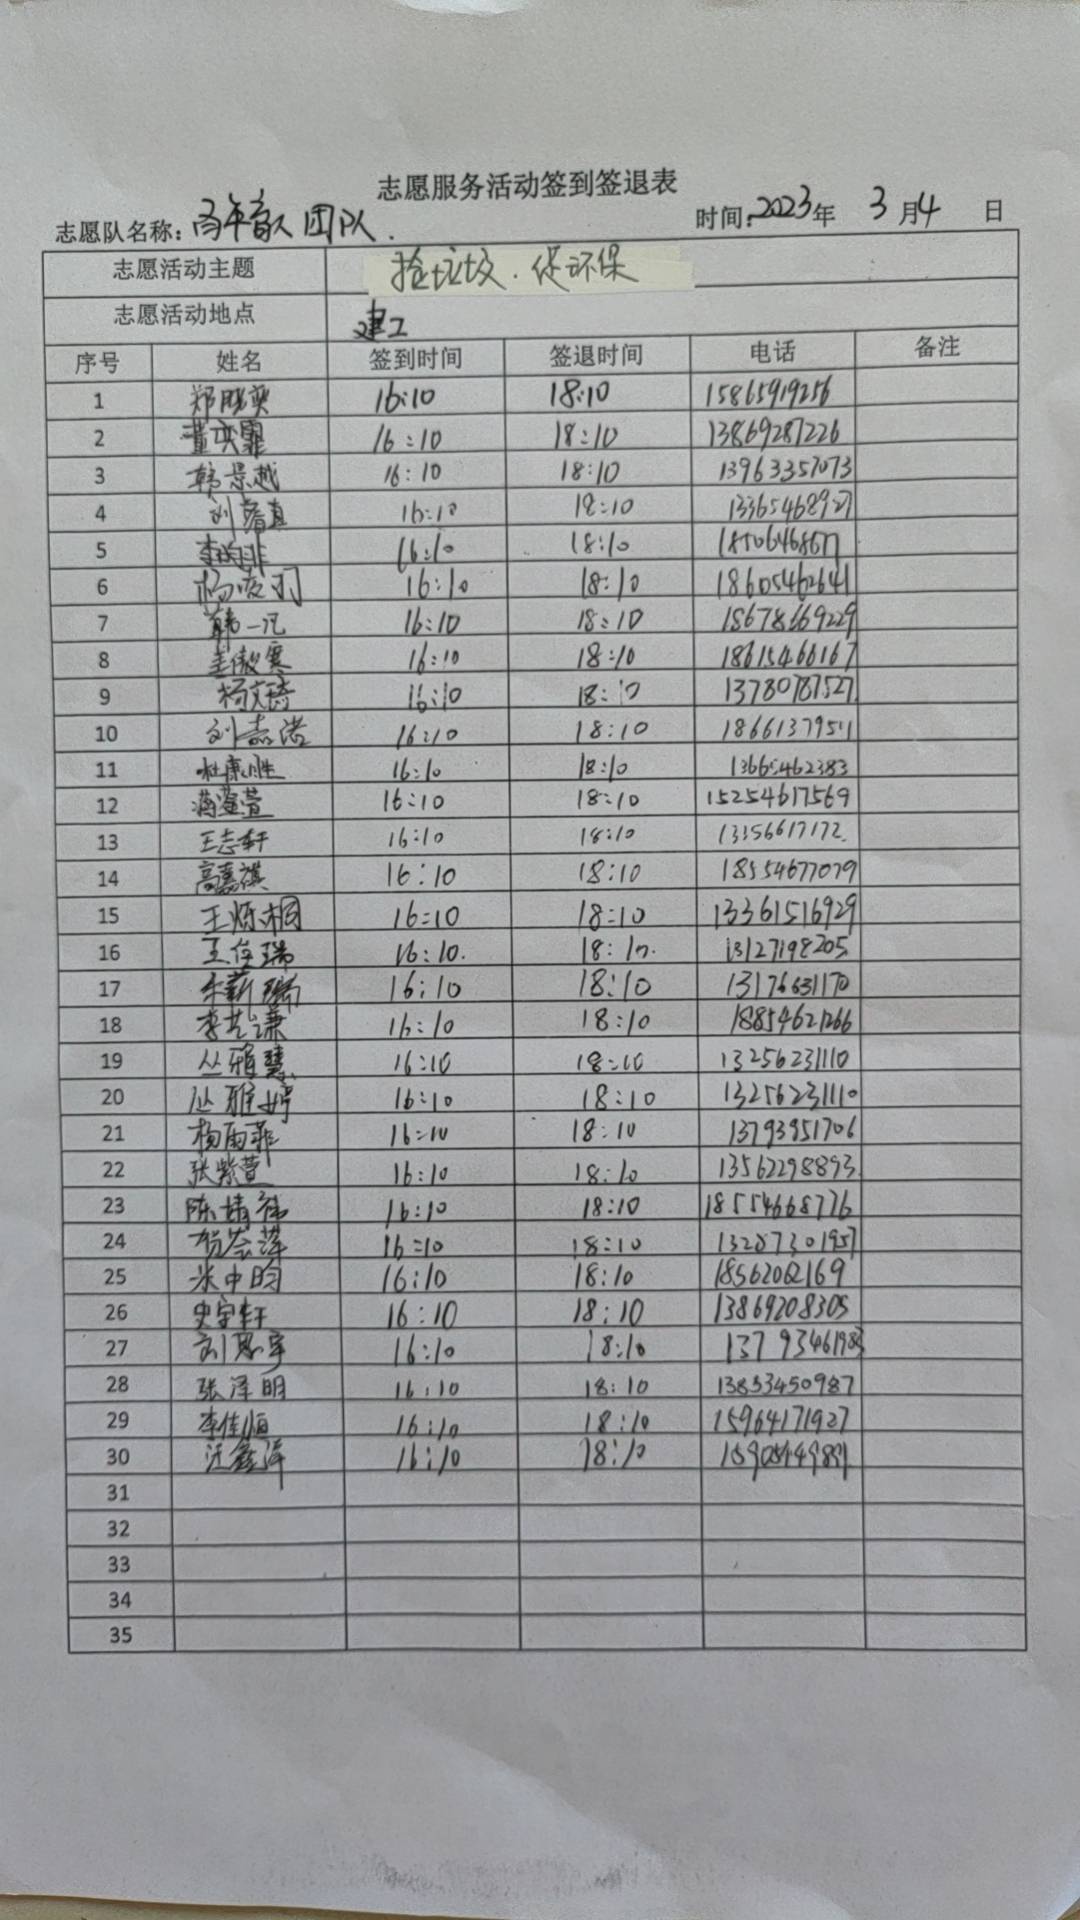 志愿服务活动签到签退表
志愿队名称: 百年育人团队. 时间: 2023年 3月4 日
志愿活动主题 捡垃圾.促环保
志愿活动地点 建工
序号 姓名 签到时间 签退时间 电话 备注
1 16:10 18:10 15865919256
2 董奕霏 16:10 18:10 13869287226
3 韩景越 16:10 18:10 13963357073
4 16:10 18:10
5 16:10 18:10
6 16:10 18:10 18605462641
7 韩一凡 16:10 18:10 18678669229
8 孟傲寒 16:10 18:10 18615466167
9 16:10 18:10 13780787527
10 刘嘉诺 16:10 18:10
11 杜康胜 16:10 18:10 13665462383
12 16:10 18:10 15254617569
13 王志轩 16:10 18:10 13356617172.
14 高嘉祺 16:10 18:10 18554677079
15 王烁桐 16:10 18:10 13361516929
16 16:10. 18:10. 13127198205.
17 16:10 18:10 13176631170
18 李艺谦 16:10 18:10 18854621266
19 丛雅慧 16:10 18:10 13256231110
20 丛雅婷 16:10 18:10 13256231110
21 杨雨菲 16:10 18:10 13793951706
22 张紫萱 16:10 18:10 13562298893.
23 陈婧 16:10 18:10 18554668776
24 16:10 18:10 13287301957
25 米中昀 16:10 18:10 18562062169
26 史宇轩 16:10 18:10 13869208305
27 刘思宇 16:10 18:10 13793461983
28 张泽明 16:10 18:10 13853450987
29 李佳恒 16:10 18:10 15964171927
30 16:10 18:10
31
32
33
34
35